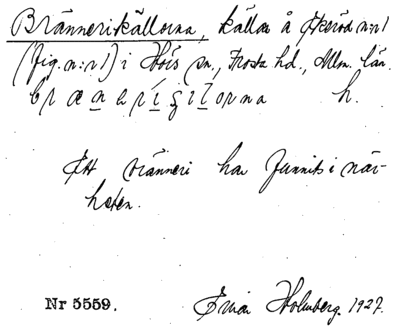 Brännerikällorna, källor å Ekeröd n:r 1
(fig. n:r 1) i Höörs sn., Frosta hd., Mlm. län.
h.
Ett bränneri har funnits i när-
heten.
Nr 5559. Ewa Holmberg. 1927.